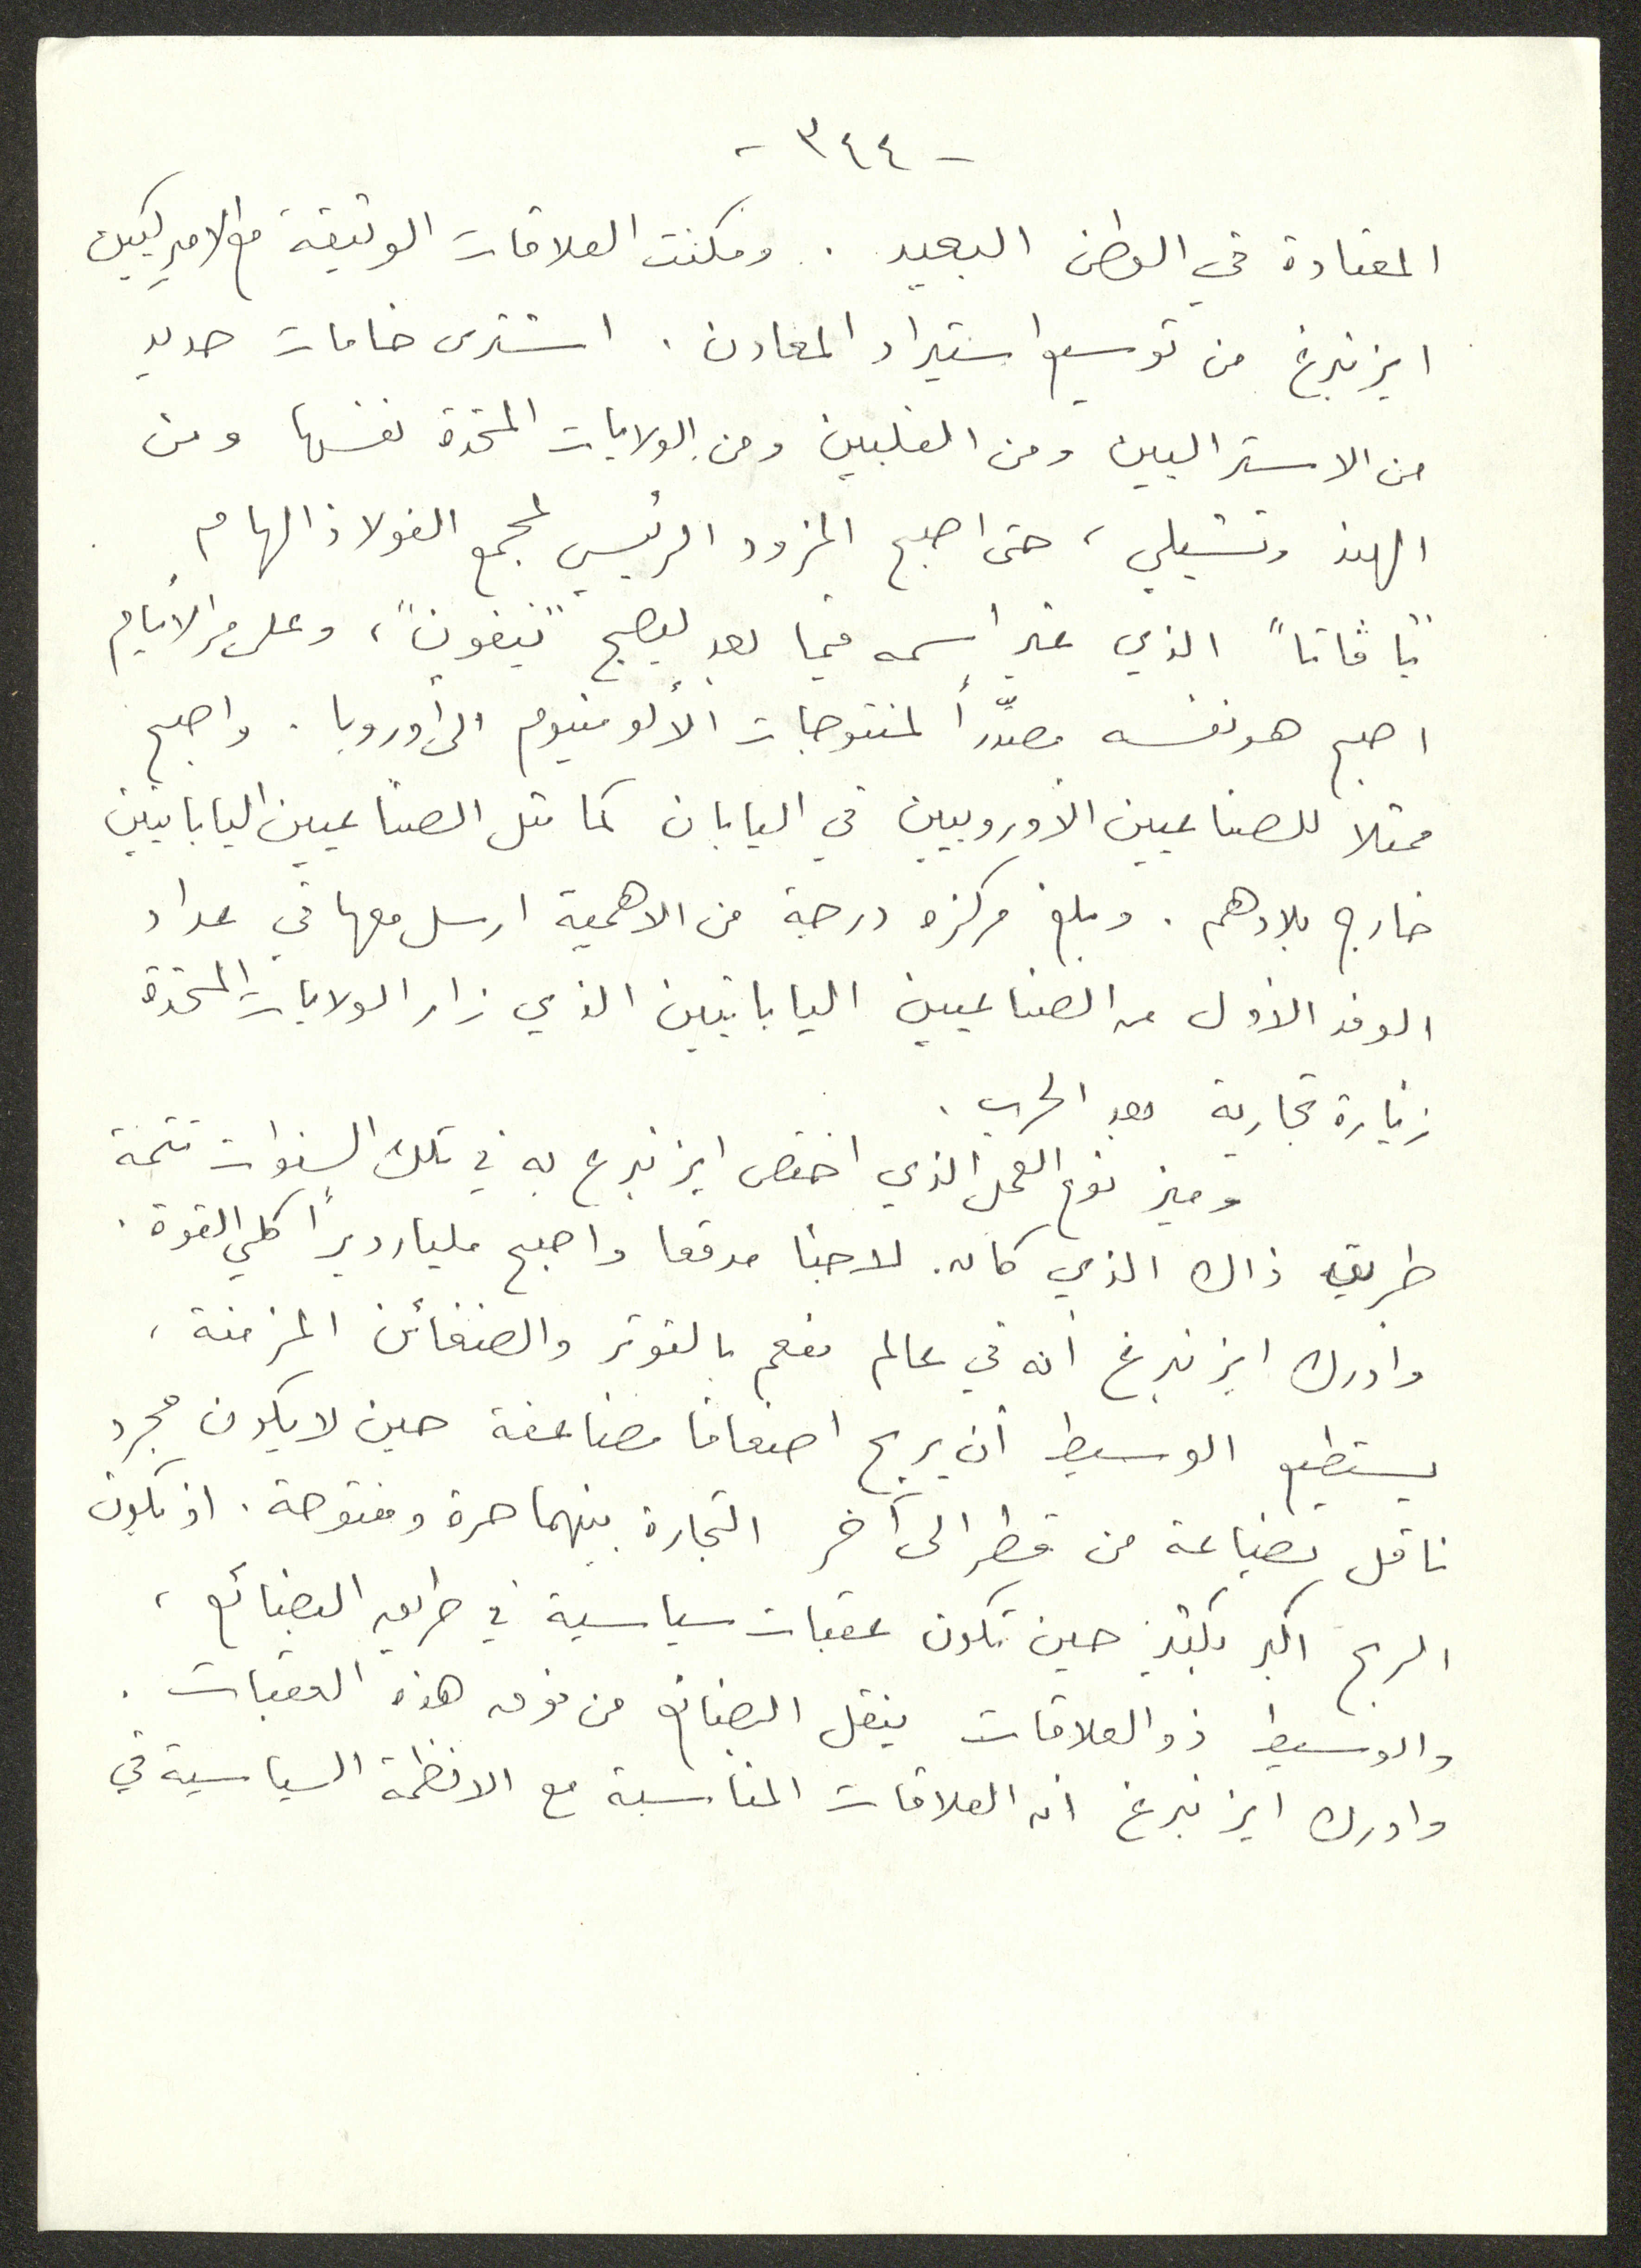 - ٣٤٤ -
المعتادة في الوطن البعيد . ومكنت العلاقات الوثيقة مع الاميركيين
ايزنبرغ من توسيع استيراد المعادن . اشترى خامات حديد
من الاستراليين ومن الفلبين ومن الولايات المتحدة نفسها ومن
الهند وتشيلي ، حتى اصبح المزود الرئيسي لمجمع الفولاذ الهام
"ياڤاتا" الذي غير اسمه فيما بعد ليصبح "نيفون" ، وعلى مر الأيام
اصبح هو نفسه مصدّراً لمنتوجات الألومنيوم الى أوروبا . واصبح
ممثلا للصناعيين الاوروبيين في اليابان كما مثل الصناعيين اليابانيين
خارج بلادهم . وبلغ مركزه درجة من الاهمية ارسل معها في عداد
الوفد الاول من الصناعيين اليابانيين الذي زار الولايات المتحدة
زيارة تجارية بعد الحرب .
وميز نوع العمل الذي اختص ايزنبرغ به في تلك السنوات تتمة
طريق ذاك الذي كان لاجئا مدقعا واصبح مليارديراً كلي القوة .
وادرك ايزنبرغ أنه في عالم مفعم بالتوتر والضغائن المزمنة ،
يستطيع الوسيط أن يربح اضعافا مضاعفة حين لا يكون مجرد
ناقل بضاعة من قطر الى آخر التجارة بينهما حرة ومفتوحة . اذ يكون
الربح اكبر بكثير حين تكون عقبات سياسية في طريق البضائع ،
والوسيط ذو العلاقات ينقل البضائع من فوق هذه العقبات .
وادرك ايزنبرغ ان العلاقات المناسبة مع الانظمة السياسية في